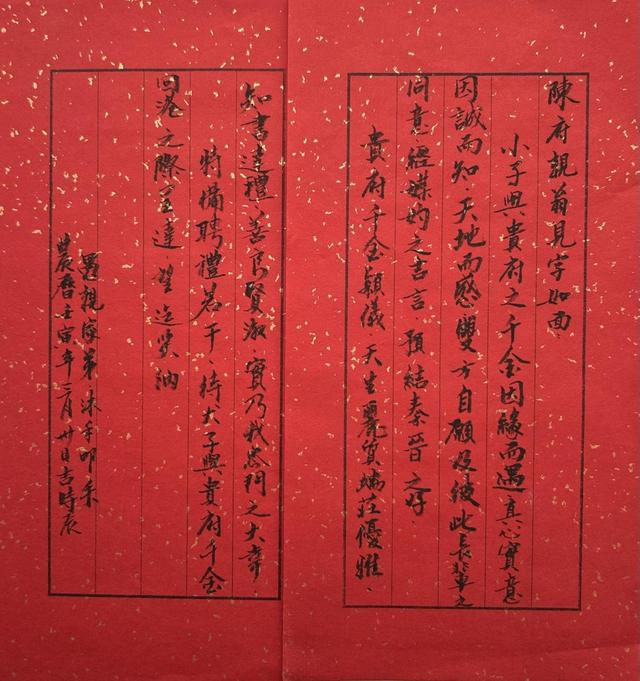 陳府親翁見字如面
小子與貴府之千金因緣而遇真心實意
因誠而知、天地而感雙方自願及彼此長輩之
同意經媒妁之書言預結秦晉之好、
貴府千金穎儀天生麗質端莊優雅、
知書達禮、善良賢淑、實乃我門之大幸、
特備聘禮若干、待犬子與貴府千金
回港之際達、望迄笑納
愚親家弟沐手叩
農曆壬寅年月日吉時辰